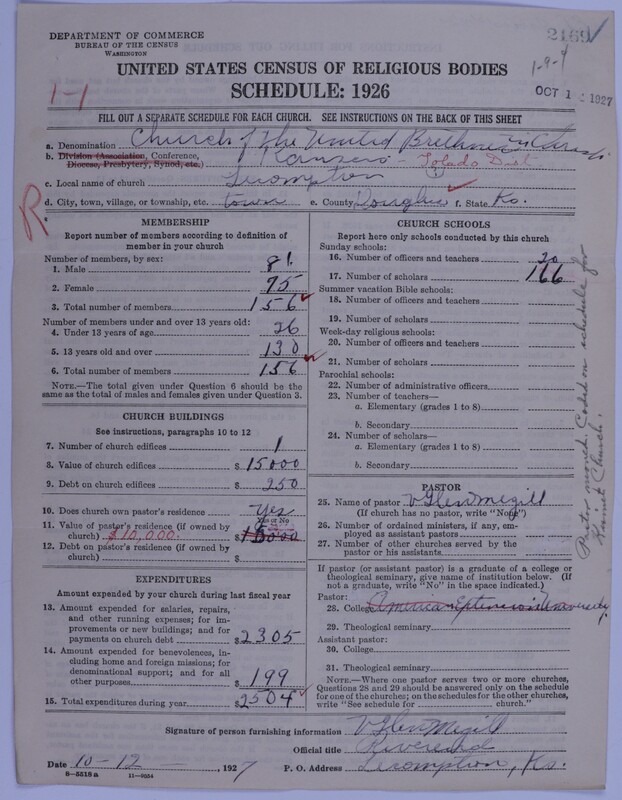 DEPARTMENT OF COMMERCE
BUREAU OF THE CENSUS
WASHINGTON
2169
1-9-9
UNITED STATES CENSUS OF RELIGIOUS BODIES
SCHEDULE: 1926
1-1
OCT 1 1927
FILL OUT A SEPARATE SCHEDULE FOR EACH CHURCH. SEE INSTRUCTIONS ON THE BACK OF THIS SHEET
a. Denomination Church of the United Brethren in Christ
b. Division (Association, Conference, Diocese, Presbytery, Synod, etc.) Kanzas - Tolado Dist
c. Local name of church Lecompton
d. City, town, village, or township, etc. town e. County Douglas f. State Ks.
R
MEMBERSHIP
Report number of members according to definition of member in your church
Number of members, by sex:
1. Male 81
2. Female 75
3. Total number of members 156
Number of members under and over 13 years old:
4. Under 13 years of age 26
5. 13 years old and over 130
6. Total number of members 156
NOTE.—The total given under Question 6 should be the same as the total of males and females given under Question 3.
CHURCH BUILDINGS
See instructions, paragraphs 10 to 12
7. Number of church edifices 1
8. Value of church edifices $ 15000
9. Debt on church edifices $ 250
10. Does church own pastor's residence Yes
Yes or No
11. Value of pastor's residence (if owned by church) $10,000. $
12. Debt on pastor's residence (if owned by church) $
EXPENDITURES
Amount expended by your church during last fiscal year
13. Amount expended for salaries, repairs, and other running expenses; for improvements or new buildings; and for payments on church debt $ 2305
14. Amount expended for benevolences, including home and foreign missions; for denominational support; and for all other purposes $ 199
15. Total expenditures during year $ 2504
CHURCH SCHOOLS
Report here only schools conducted by this church
Sunday schools:
16. Number of officers and teachers 20
17. Number of scholars 166
Summer vacation Bible schools:
18. Number of officers and teachers
19. Number of scholars
Week-day religious schools:
20. Number of officers and teachers
21. Number of scholars
Parochial schools:
22. Number of administrative officers
23. Number of teachers—
a. Elementary (grades 1 to 8)
b. Secondary
24. Number of scholars—
a. Elementary (grades 1 to 8)
b. Secondary
PASTOR
25. Name of pastor V Glen Megill
(If church has no pastor, write "None")
26. Number of ordained ministers, if any, employed as assistant pastors
27. Number of other churches served by the pastor or his assistants
If pastor (or assistant pastor) is a graduate of a college or theological seminary, give name of institution below. (If not a graduate, write "No" in the space indicated.)
Pastor:
28. College American Extension University
29. Theological seminary
Assistant pastor:
30. College
31. Theological seminary
NOTE.—Where one pastor serves two or more churches, Questions 28 and 29 should be answered only on the schedule for one of the churches; on the schedules for the other churches, write "See schedule for church.")
Pastor moved. Coded on schedule for
Church.
Signature of person furnishing information V Glen Megill
Official title Reverend
Date 10-12, 1927 P. O. Address Lecompton, Ks.
8-5318a 11-9354